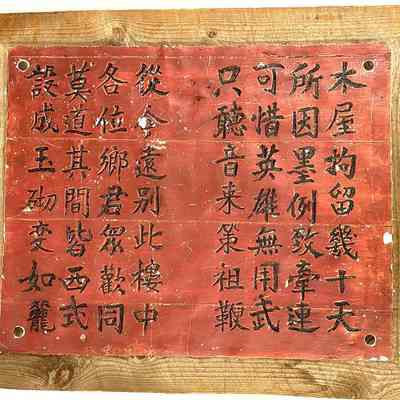 木屋拘留幾十天
所因墨例致牽連
可惜英雄無用武
只聽音來策祖鞭
從今遠别此樓中
各位鄉君眾歡同
莫道其間皆西式
設成玉砌變如籠